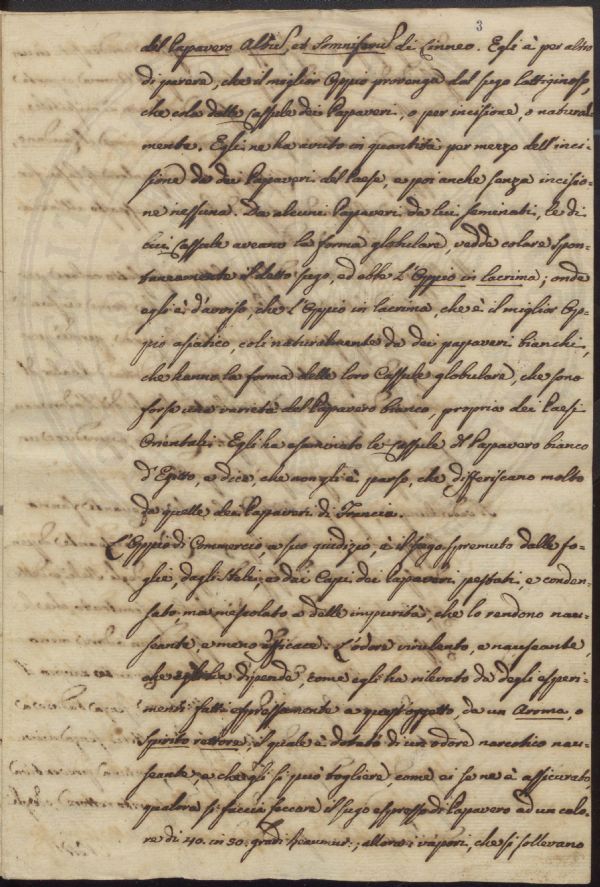 3
del Papavero Albus, et Somniferus di Linneo. Egli è per altro
di parere, che il miglior Oppio provenga dal sugo lattiginoso,
che cola dalle Cassule dei Papaveri, o per incisione, o natural-
mente. Egli ne ha avuto in quantità per mezzo dell'inci-
sione da dei Papaveri del Paese, e poi anche senza incisio-
ne nessuna. Da alcuni Papaveri da lui seminati, le di
cui Cassule aveano la forma globulare, vedde colare spon-
taneamente il detto sugo, ed ebbe l'Oppio in lacrima; onde
egli è d'avviso, che l'Oppio in lacrima, che è il miglior Op-
pio asiatico, coli naturalmente da dei pappaveri bianchi,
che hanno la forma delle loro Cassule globulare, che sono
forse una varietà del Papavero bianco, propria dei Paesi
Orientali. Egli ha esaminato le Cassule d'Papavero bianco
d'Egitto, e dice che non gli è parso, che differiscano molto
da quelle dei Papaveri di Francia.
L'Oppio di Commercio, a suo giudizio, è il sugo spremuto dalle fo-
glie, dagli Steli, e dai Capi dei Papaveri pestati, e conden-
sato, ma mescolato a delle impurità, che lo rendono nau-
seante, e meno efficace. L'odore virulento, e nauseante,
che egli ha dipende, come egli ha rilevato da degli esperi-
menti fatti espressamente a quest'oggetto, da un Aroma, o
Spirito rettore, il quale è dotato di un odore narcotico nau-
seante, e che gli si può togliere, come ei se ne è assicurato,
qualora si faccia seccare il sugo espresso di Papavero ad un calo-
re di 40. in 50. gradi Reaumur.; allora i vapori, che si sollevano